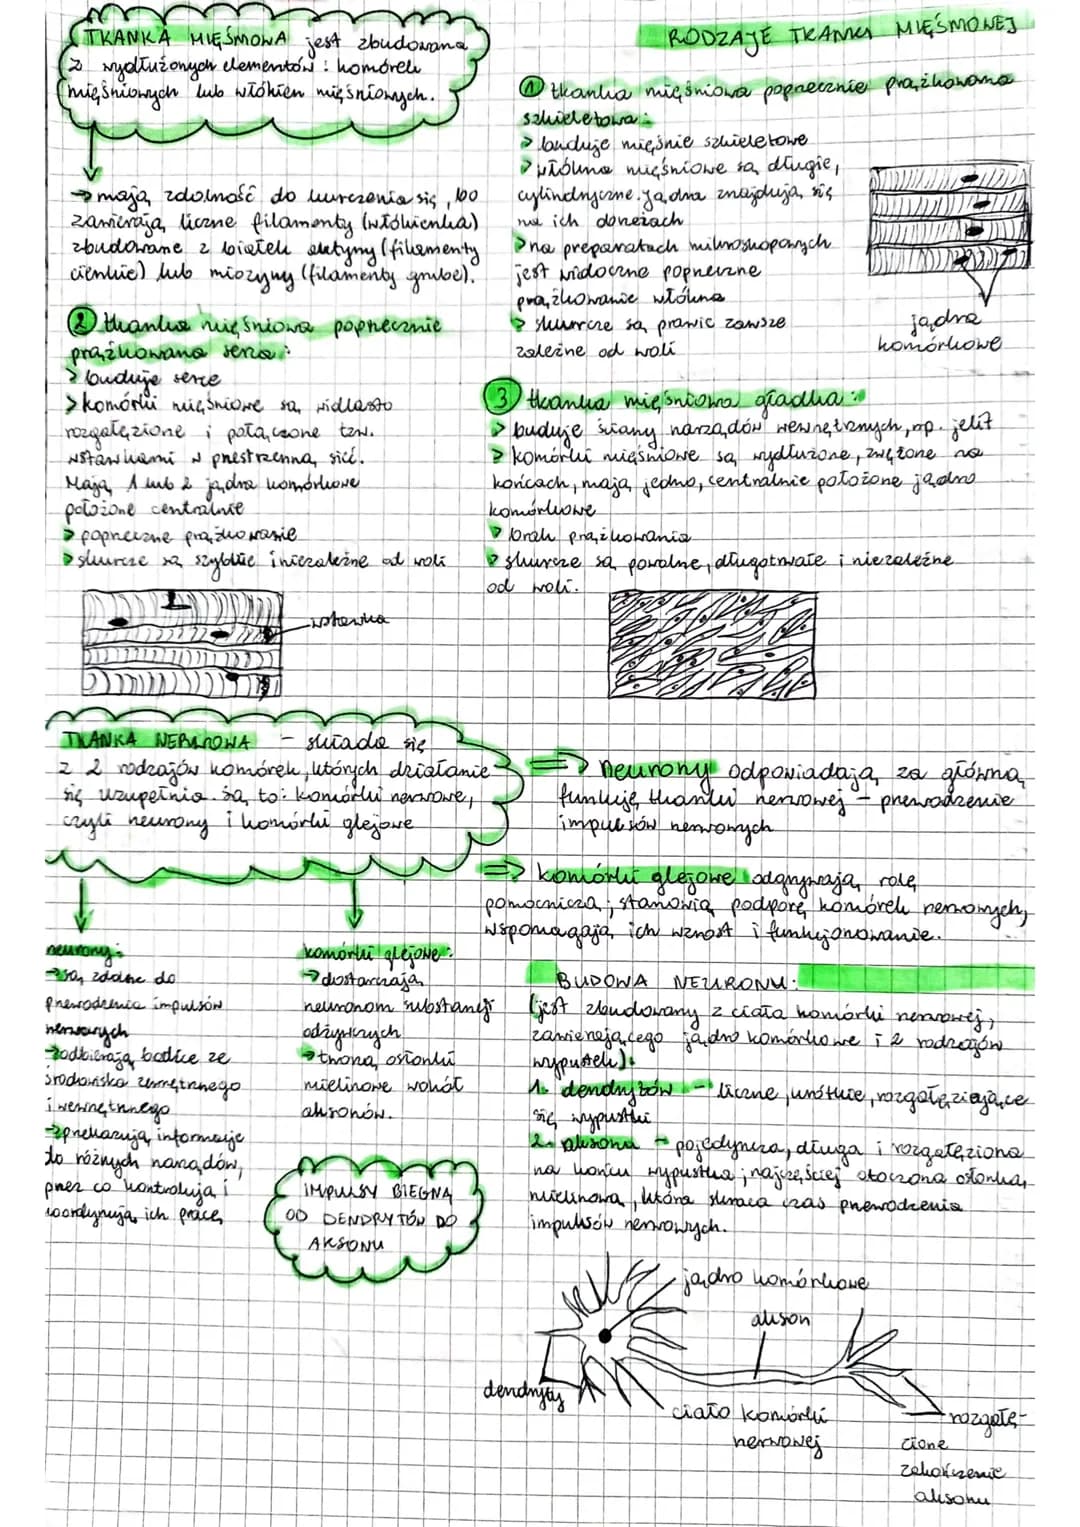 TKANKA MIĘŚNIOWA jest zbudowana
z wydłużonych elementów : komórek
mięśniowych lub włókien mięśniowych.
→ mają zdolność do kurczenia się, bo
zawierają liczne filamenty (włókienka)
zbudowane z białek aktyny (filamenty
cienkie) lub miozyny (filamenty grube).
RODZAJE TKANKI MIĘŚNIOWEJ
① tkanka mięśniowa poprzecznie prążkowana
szkieletowa :
> buduje mięśnie szkieletowe
> włókna mięśniowe są długie,
cylindryczne. Jądra znajdują się
na ich obrzeżach
> na preparatach mikroskopowych
jest widoczne poprzeczne
prążkowanie włókna
> skurcze są prawie zawsze
zależne od woli
jądra
komórkowe
② tkanka mięśniowa poprzecznie
prążkowana serca :
> buduje serce
> komórki mięśniowe są widlasto
rozgałęzione i połączone tzw.
wstawkami w przestrzenną sieć.
Mają 1 lub 2 jądra komórkowe
położone centralnie
> poprzeczne prążkowanie
> skurcze są szybkie i niezależne od woli
wstawka
③ tkanka mięśniowa gładka :
> buduje ściany narządów wewnętrznych, np. jelit
> komórki mięśniowe są wydłużone, zwężone na
końcach, mają jedno, centralnie położone jądro
komórkowe
> brak prążkowania
> skurcze są powolne, długotrwałe i niezależne
od woli.
TKANKA NERWOWA - składa się
z 2 rodzajów komórek, których działanie
się uzupełnia. są to: komórki nerwowe,
czyli neurony i komórki glejowe
⇒ neurony odpowiadają za główną
funkcję tkanki nerwowej - przewodzenie
impulsów nerwowych
⇒ komórki glejowe odgrywają rolę
pomocniczą; stanowią podporę komórek nerwowych,
wspomagają ich wzrost i funkcjonowanie.
neurony:
→ są zdolne do
przewodzenia impulsów
nerwowych
→ odbierają bodźce ze
środowiska zewnętrznego
i wewnętrznego
→ przekazują informacje
do różnych narządów,
przez co kontrolują i
koordynują ich pracę
komórki glejowe:
→ dostarczają
neuronom substancji
odżywczych
→ tworzą osłonki
mielinowe wokół
aksonów.
IMPULSY BIEGNĄ
OD DENDRYTÓW DO
AKSONU
BUDOWA NEURONU:
(jest zbudowany z ciała komórki nerwowej,
zawierającego jądro komórkowe i 2 rodzajów
wypustek):
1. dendrytów - liczne, krótkie, rozgałęziające
się wypustki
2. aksonu - pojedyncza, długa i rozgałęziona
na końcu wypustka; najczęściej otoczona osłonką
mielinową, która skraca czas przewodzenia
impulsów nerwowych.
jądro komórkowe
akson
dendryty
ciało komórki
nerwowej
rozgałę-
zione
zakończenie
aksonu